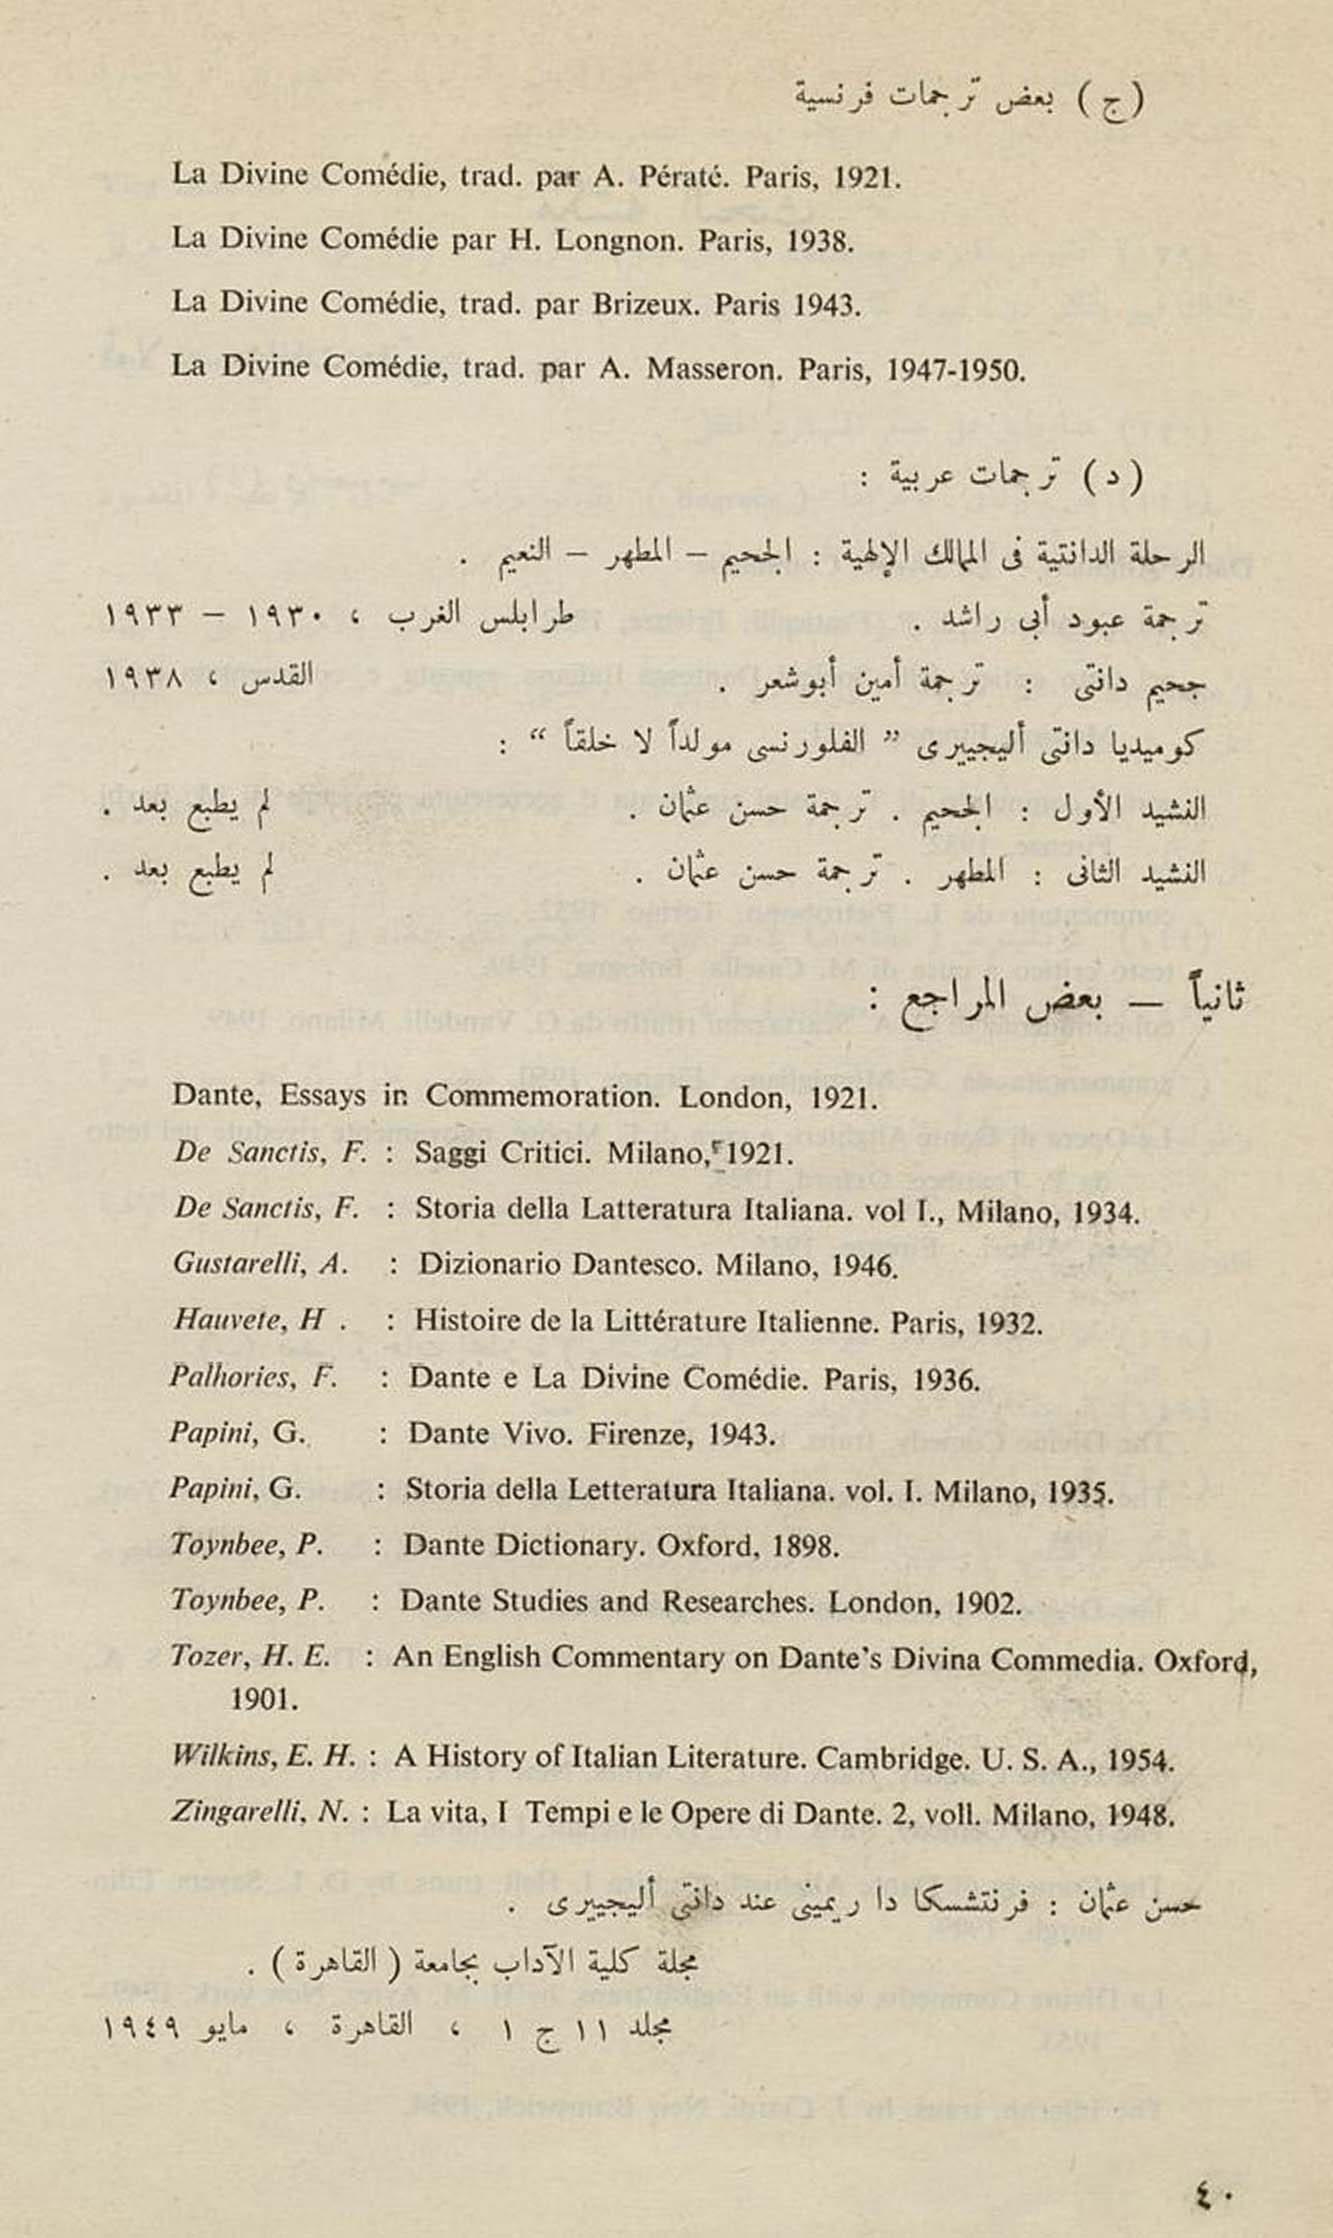 (ج) بعض ترجمات فرنسية
La Divine Comédie, trad. par A. Pératé. Paris, 1921.
La Divine Comédie par H. Longnon. Paris, 1938.
La Divine Comédie, trad. par Brizeux. Paris 1943.
La Divine Comédie, trad. par A. Masseron. Paris, 1947-1950.
(د) ترجمات عربية :
الرحلة الدانتية فى الممالك الإلهية : الجحيم – المطهر – النعيم .
ترجمة عبود أبى راشد . طرابلس الغرب ، ١٩٣٠ – ١٩٣٣
جحيم دانتى : ترجمة أمين أبوشعر . القدس ، ١٩٣٨
كوميديا دانتى أليجييرى ” الفلورنسى مولداً لا خلقاً “ :
النشيد الأول : الجحيم . ترجمة حسن عثمان . لم يطبع بعد .
النشيد الثانى : المطهر . ترجمة حسن عثمان . لم يطبع بعد .
ثانياً – بعض المراجع :
Dante, Essays in Commemoration. London, 1921.
De Sanctis, F. : Saggi Critici. Milano, 1921.
De Sanctis, F. : Storia della Latteratura Italiana. vol I., Milano, 1934.
Gustarelli, A. : Dizionario Dantesco. Milano, 1946.
Hauvete, H . : Histoire de la Littérature Italienne. Paris, 1932.
Palhories, F. : Dante e La Divine Comédie. Paris, 1936.
Papini, G. : Dante Vivo. Firenze, 1943.
Papini, G. : Storia della Letteratura Italiana. vol. I. Milano, 1935.
Toynbee, P. : Dante Dictionary. Oxford, 1898.
Toynbee, P. : Dante Studies and Researches. London, 1902.
Tozer, H. E. : An English Commentary on Dante's Divina Commedia. Oxford,
1901.
Wilkins, E. H. : A History of Italian Literature. Cambridge. U. S. A., 1954.
Zingarelli, N. : La vita, I Tempi e le Opere di Dante. 2, voll. Milano, 1948.
حسن عثمان : فرنتشسكا دا ريمينى عند دانتى أليجييرى .
مجلة كلية الآداب بجامعة ( القاهرة ) .
مجلد ١١ ج ١ ، القاهرة ، مايو ١٩٤٩
٤٠